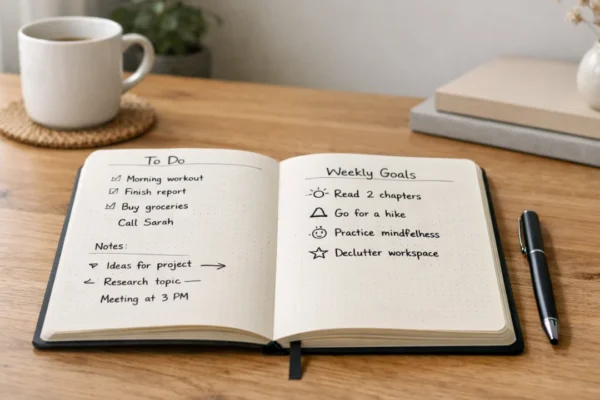 To Do
Morning workout
Finish report
Buy groceries
Call Sarah
Notes:
Ideas for project
Research topic
Meeting at 3 PM
Weekly Goals
Read 2 chapters
Go for a hike
Practice mindfelness
Declutter workspace